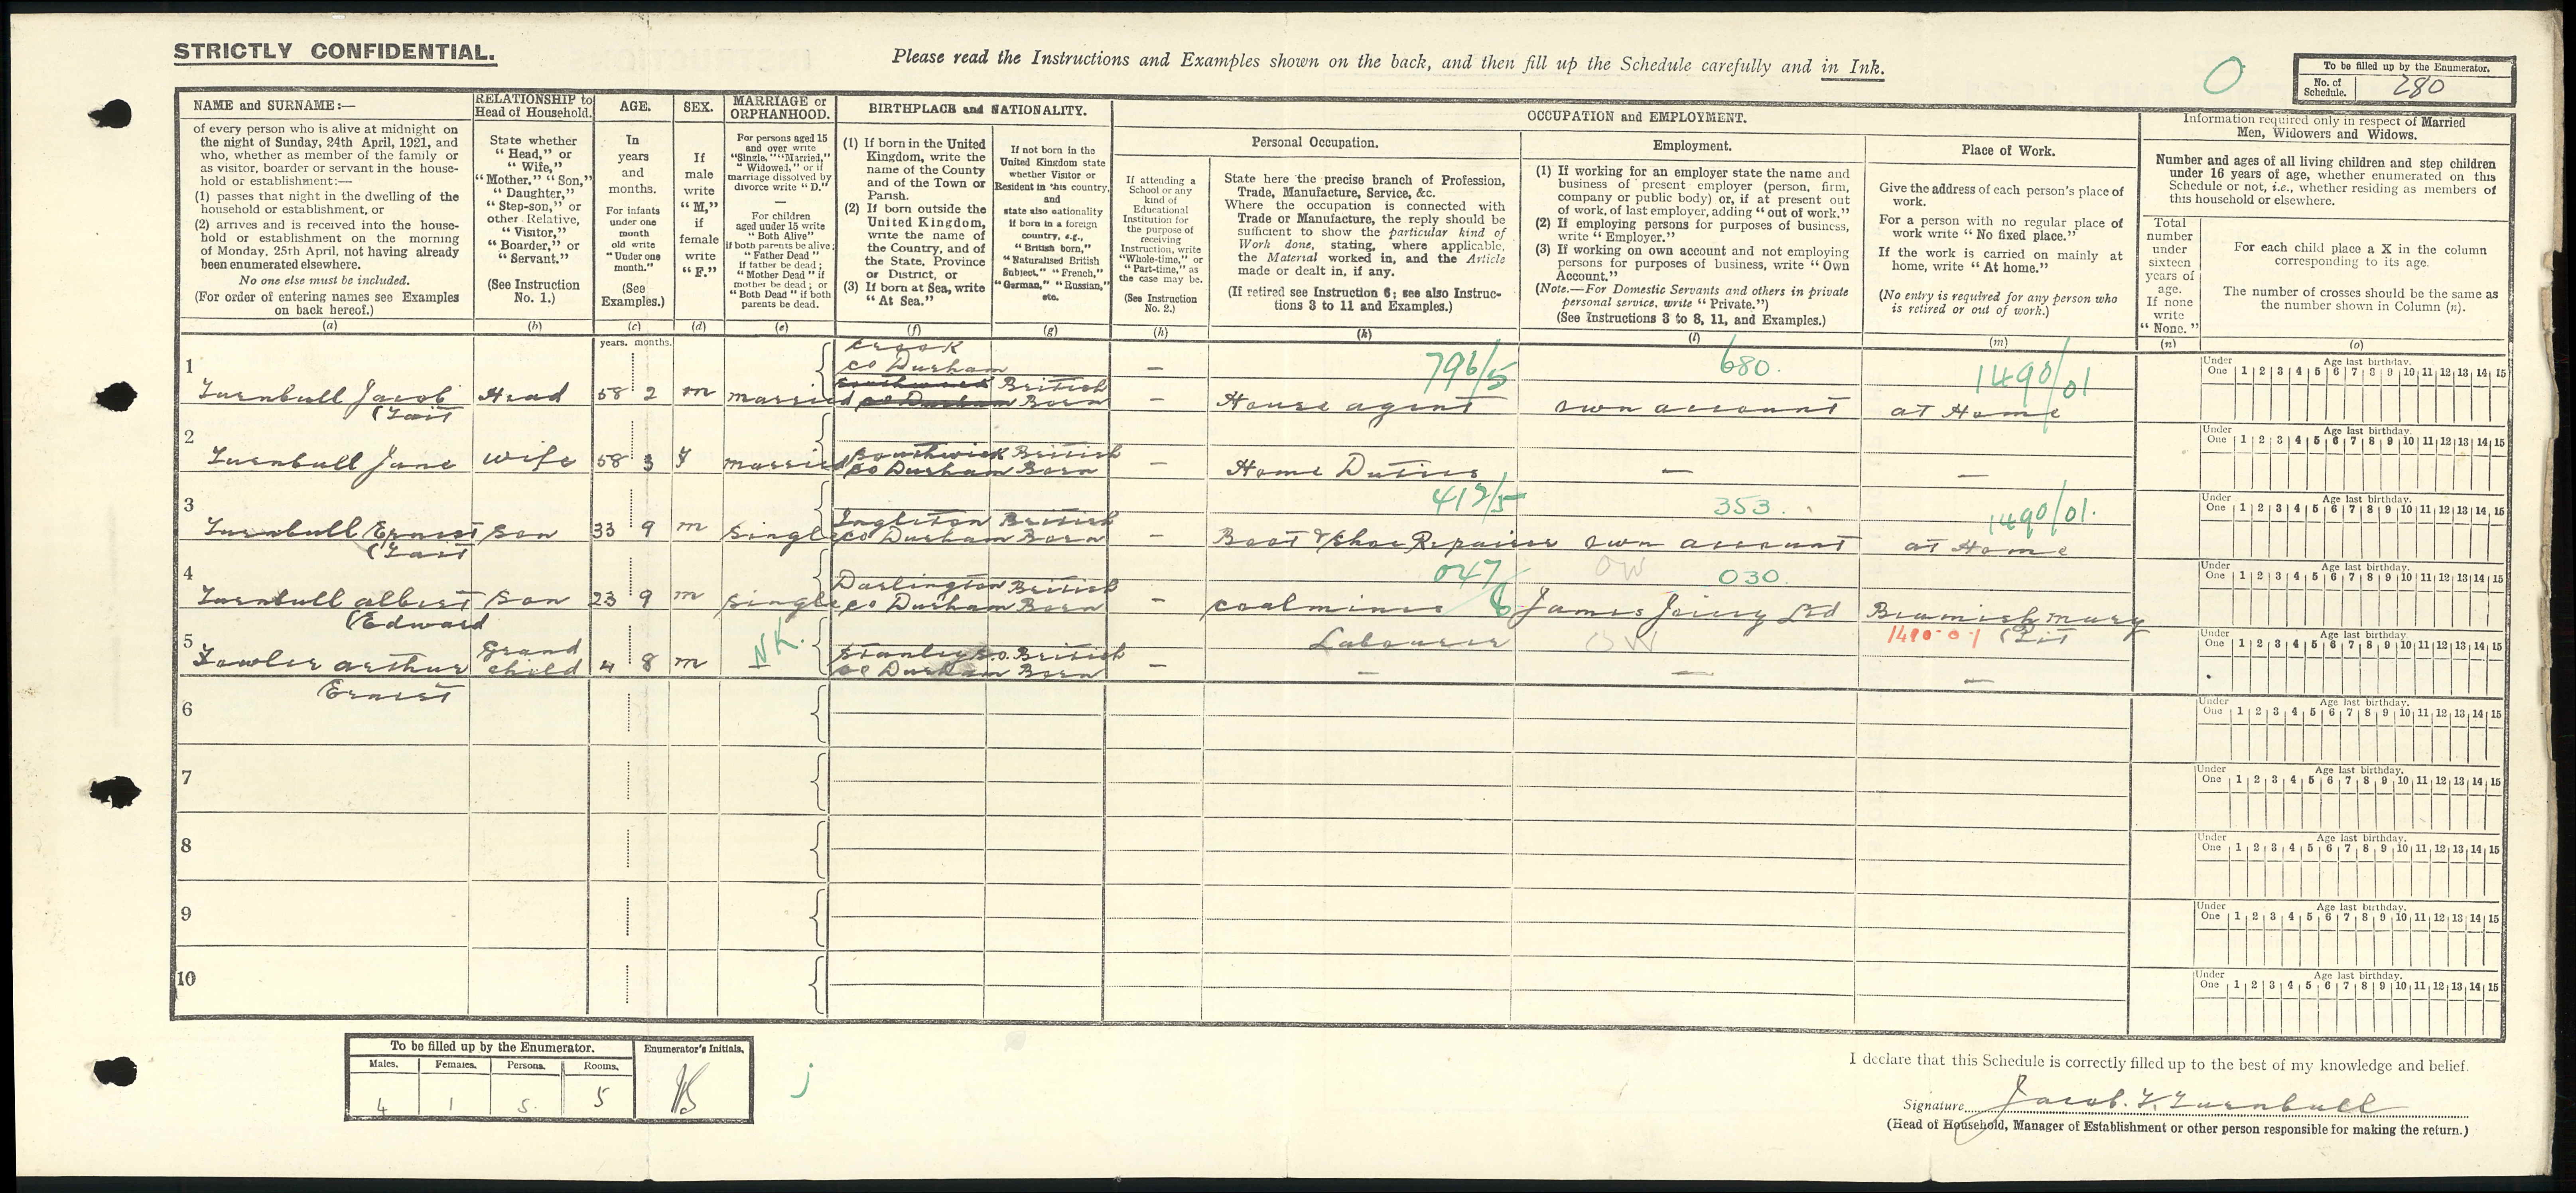 STRICTLY CONFIDENTIAL.
Please read the Instructions and Examples shown on the back, and then fill up the Schedule carefully and in Ink.
0
To be filled up by the Enumerator.
No. of Schedule. 280
NAME and SURNAME:—
of every person who is alive at midnight on
the night of Sunday, 24th April, 1921, and
who, whether as member of the family or
as visitor, boarder or servant in the house-
hold or establishment:—
(1) passes that night in the dwelling of the
household or establishment, or
(2) arrives and is received into the house-
hold or establishment on the morning
of Monday, 25th April, not having already
been enumerated elsewhere.
No one else must be included.
(For order of entering names see Examples
on back hereof.)
(a)
RELATIONSHIP to
Head of Household.
State whether
"Head," or
"Wife,"
"Mother," "Son,"
"Daughter,"
"Step-son," or
other Relative,
"Visitor,"
"Boarder," or
"Servant."
(See Instruction
No. 1.)
(b)
AGE.
In
years
and
months.
For infants
under one
month
old write
"Under one
month."
(See
Examples.)
(c)
SEX.
If
male
write
"M,"
if
female
write
"F."
(d)
MARRIAGE or
ORPHANHOOD.
For persons aged 15
and over write
"Single," "Married,"
"Widowed," or if
marriage dissolved by
divorce write "D."
—
For children
aged under 15 write
"Both Alive"
if both parents be alive;
"Father Dead"
if father be dead;
"Mother Dead" if
mother be dead; or
"Both Dead" if both
parents be dead.
(e)
BIRTHPLACE and NATIONALITY.
(1) If born in the United
Kingdom, write the
name of the County
and of the Town or
Parish.
(2) If born outside the
United Kingdom,
write the name of
the Country, and of
the State, Province
or District, or
(3) If born at Sea, write
"At Sea."
(f)
If not born in the
United Kingdom state
whether Visitor or
Resident in this country,
and
state also nationality
if born in a foreign
country, e.g.,
"British born,"
"Naturalised British
Subject," "French,"
"German," "Russian,"
etc.
(g)
OCCUPATION and EMPLOYMENT.
If attending a
School or any
kind of
Educational
Institution for
the purpose of
receiving
Instruction, write
"Whole-time," or
"Part-time," as
the case may be.
(See Instruction
No. 2.)
(h)
Personal Occupation.
State here the precise branch of Profession,
Trade, Manufacture, Service, &c.
Where the occupation is connected with
Trade or Manufacture, the reply should be
sufficient to show the particular kind of
Work done, stating, where applicable,
the Material worked in, and the Article
made or dealt in, if any.
(If retired see Instruction 6; see also Instruc-
tions 3 to 11 and Examples.)
(k)
Employment.
(1) If working for an employer state the name and
business of present employer (person, firm,
company or public body) or, if at present out
of work, of last employer, adding "out of work."
(2) If employing persons for purposes of business,
write "Employer."
(3) If working on own account and not employing
persons for purposes of business, write "Own
Account."
(Note.—For Domestic Servants and others in private
personal service, write "Private.")
(See Instructions 3 to 8, 11, and Examples.)
(l)
Place of Work.
Give the address of each person's place of
work.
For a person with no regular place of
work write "No fixed place."
If the work is carried on mainly at
home, write "At home."
(No entry is required for any person who
is retired or out of work.)
(m)
Information required only in respect of Married
Men, Widowers and Widows.
Number and ages of all living children and step children
under 16 years of age, whether enumerated on this
Schedule or not, i.e., whether residing as members of
this household or elsewhere.
Total
number
under
sixteen
years of
age.
If none
write
"None."
(n)
For each child place a X in the column
corresponding to its age.
The number of crosses should be the same as
the number shown in Column (n).
(o)
years. months.
Crook
co Durham
796/5 680. 1490/01
1 Turnbull Jacob Head 58 2 m married Southwick British — House agent own account at Home
(Tait co Durham Born —
Under One 1 2 3 4 5 6 7 8 9 10 11 12 13 14 15 Age last birthday.
2 Turnbull Jane wife 58 3 F married Southwick British — Home Duties — —
co Durham Born
Under One 1 2 3 4 5 6 7 8 9 10 11 12 13 14 15 Age last birthday.
412/5 353. 1490/01.
3 Turnbull Ernest Son 33 9 m Single Ingleton British — Boot & Shoe Repairer own account at Home
(Tait co Durham Born
Under One 1 2 3 4 5 6 7 8 9 10 11 12 13 14 15 Age last birthday.
047/6 OW 030.
4 Turnbull albert Son 23 9 m Single Darlington British — coalminer James Joicey Ltd Beamish Mary
(Edward co Durham Born Labourer OW 1490-01 (Pit
Under One 1 2 3 4 5 6 7 8 9 10 11 12 13 14 15 Age last birthday.
5 Fowler arthur Grand child 4 8 m NK. Stanley S.O. British — — — —
Ernest co Durham Born
Under One 1 2 3 4 5 6 7 8 9 10 11 12 13 14 15 Age last birthday.
6
Under One 1 2 3 4 5 6 7 8 9 10 11 12 13 14 15 Age last birthday.
7
Under One 1 2 3 4 5 6 7 8 9 10 11 12 13 14 15 Age last birthday.
8
Under One 1 2 3 4 5 6 7 8 9 10 11 12 13 14 15 Age last birthday.
9
Under One 1 2 3 4 5 6 7 8 9 10 11 12 13 14 15 Age last birthday.
10
Under One 1 2 3 4 5 6 7 8 9 10 11 12 13 14 15 Age last birthday.
To be filled up by the Enumerator.
Males. Females. Persons. Rooms.
4 1 5. 5
Enumerator's Initials.
j
I declare that this Schedule is correctly filled up to the best of my knowledge and belief.
Signature Jacob. T. Turnbull
(Head of Household, Manager of Establishment or other person responsible for making the return.)